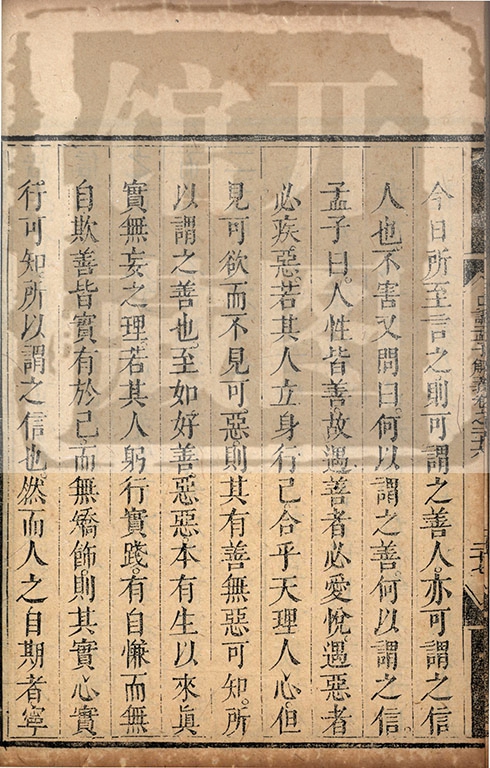 今日所至言之則可謂之善人亦可謂之信
人也不害又問曰何以謂之善何以謂之信
孟子曰人性皆善故遇善者必愛悅遇惡者
必疾惡若其人立身行己合乎天理人心但
見可欲而不見可惡則其有善無惡可知所
以謂之善也至如好善惡惡本有生以來眞
實無妄之理若其人躬行實踐有自慊而無
自欺善皆實有於己而無矯飾則其實心實
行可知所以謂之信也然而人之自期者寧